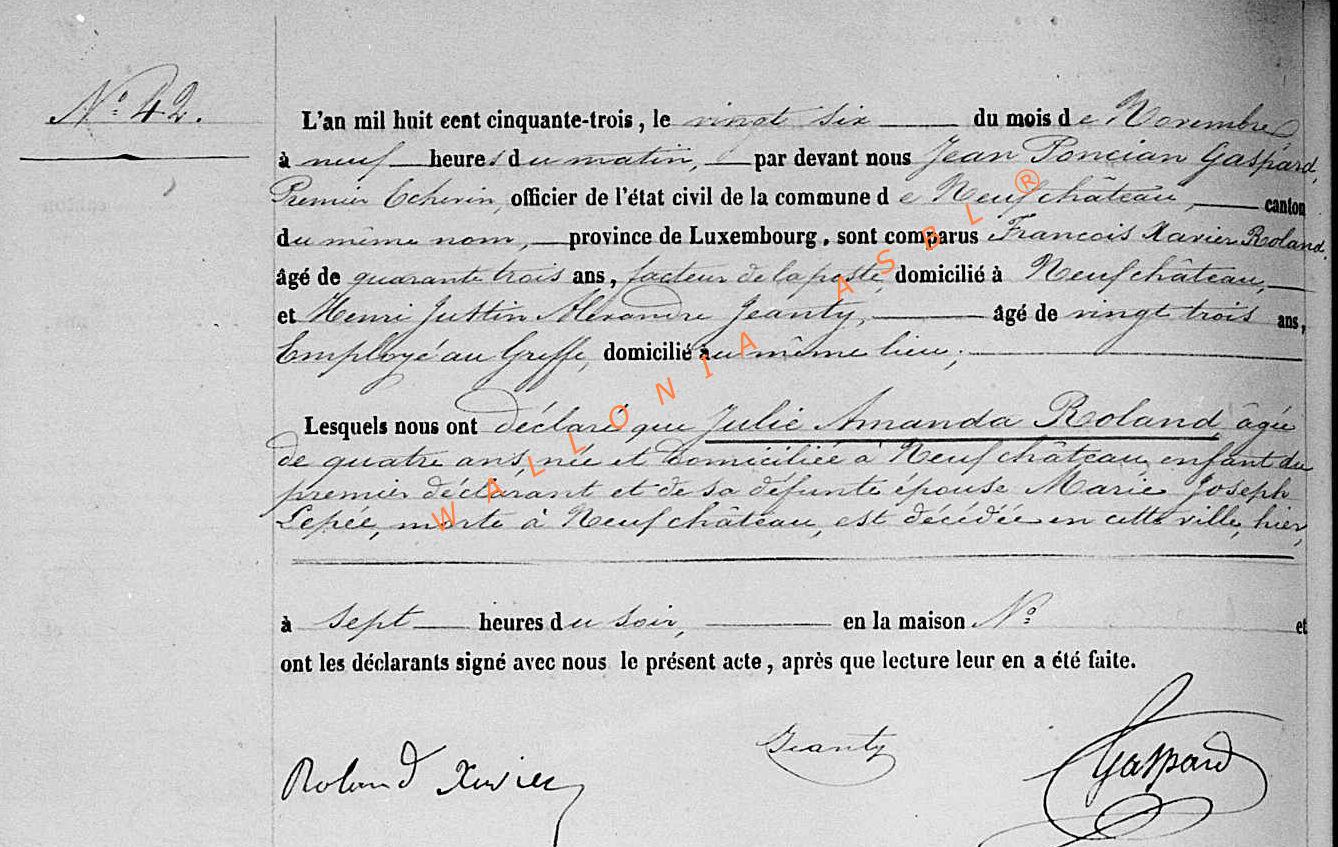 N° 42.
L'an mil huit cent cinquante-trois, le vingt six du mois de Novembre
à neuf heures du matin, par devant nous Jean Poncian Gaspard,
Premier Echevin, officier de l'état civil de la commune de Neufchâteau, canton
du même nom, province de Luxembourg, sont comparus Francois Xavier Roland,
âgé de quarante trois ans, facteur de la poste, domicilié à Neufchâteau,
et Henri Justin Alexandre Jeanty, âgé de vingt trois ans,
Employé au Greffe, domicilié au même lieu;
Lesquels nous ont déclaré que Julie Amanda Roland, âgée
de quatre ans, née et domiciliée à Neufchâteau, enfant du
premier déclarant et de sa défunte épouse Marie Joseph
Lepée, morte à Neufchâteau, est décédée en cette ville, hier,
à sept heures du soir, en la maison N° et
ont les déclarants signé avec nous le présent acte, après que lecture leur en a été faite.
Roland Xavier Jeanty Gaspard
WALLONIA ASBL ®